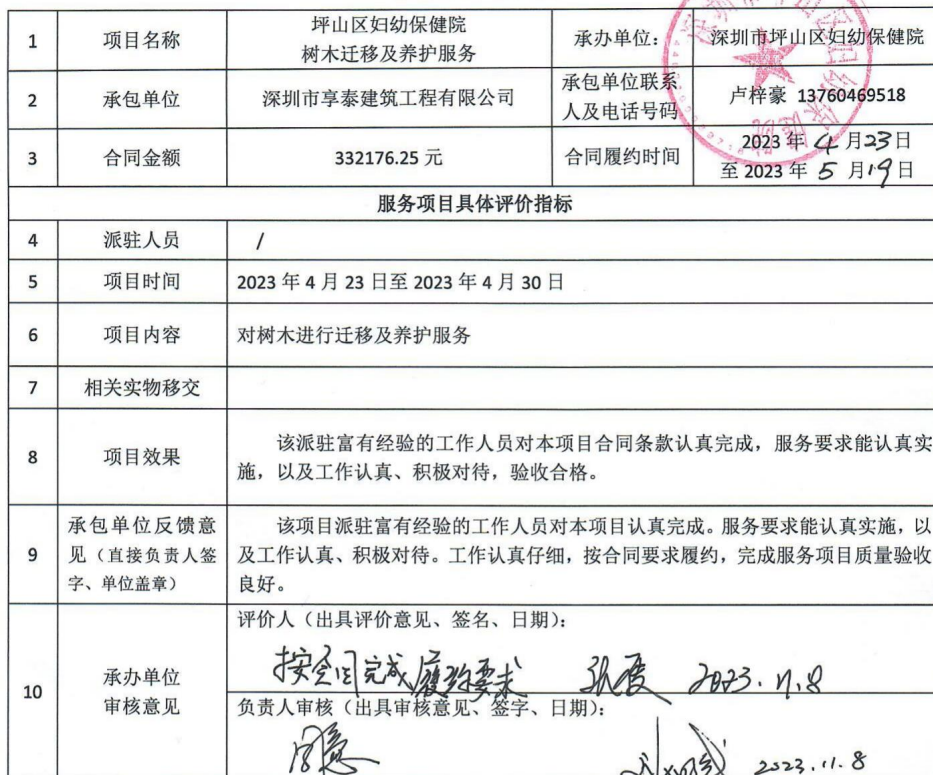 1 项目名称 坪山区妇幼保健院 承办单位: 深圳市坪山区妇幼保健院
树木迁移及养护服务
2 承包单位 深圳市享泰建筑工程有限公司 承包单位联系 卢梓豪 13760469518
人及电话号码
3 合同金额 332176.25 元 合同履约时间 2023 年 4 月23日
至 2023 年 5 月19日
服务项目具体评价指标
4 派驻人员 /
5 项目时间 2023 年 4 月 23 日至 2023 年 4 月 30 日
6 项目内容 对树木进行迁移及养护服务
7 相关实物移交
8 项目效果 该派驻富有经验的工作人员对本项目合同条款认真完成，服务要求能认真实
施，以及工作认真、积极对待，验收合格。
承包单位反馈意 该项目派驻富有经验的工作人员对本项目认真完成。服务要求能认真实施，以
9 见（直接负责人签 及工作认真、积极对待。工作认真仔细，按合同要求履约，完成服务项目质量验收
字、单位盖章） 良好。
评价人（出具评价意见、签名、日期）：
按合同完成履约要求 2023.11.8
10 承办单位
审核意见
负责人审核（出具审核意见、签字、日期）：
同意 2023.11.8